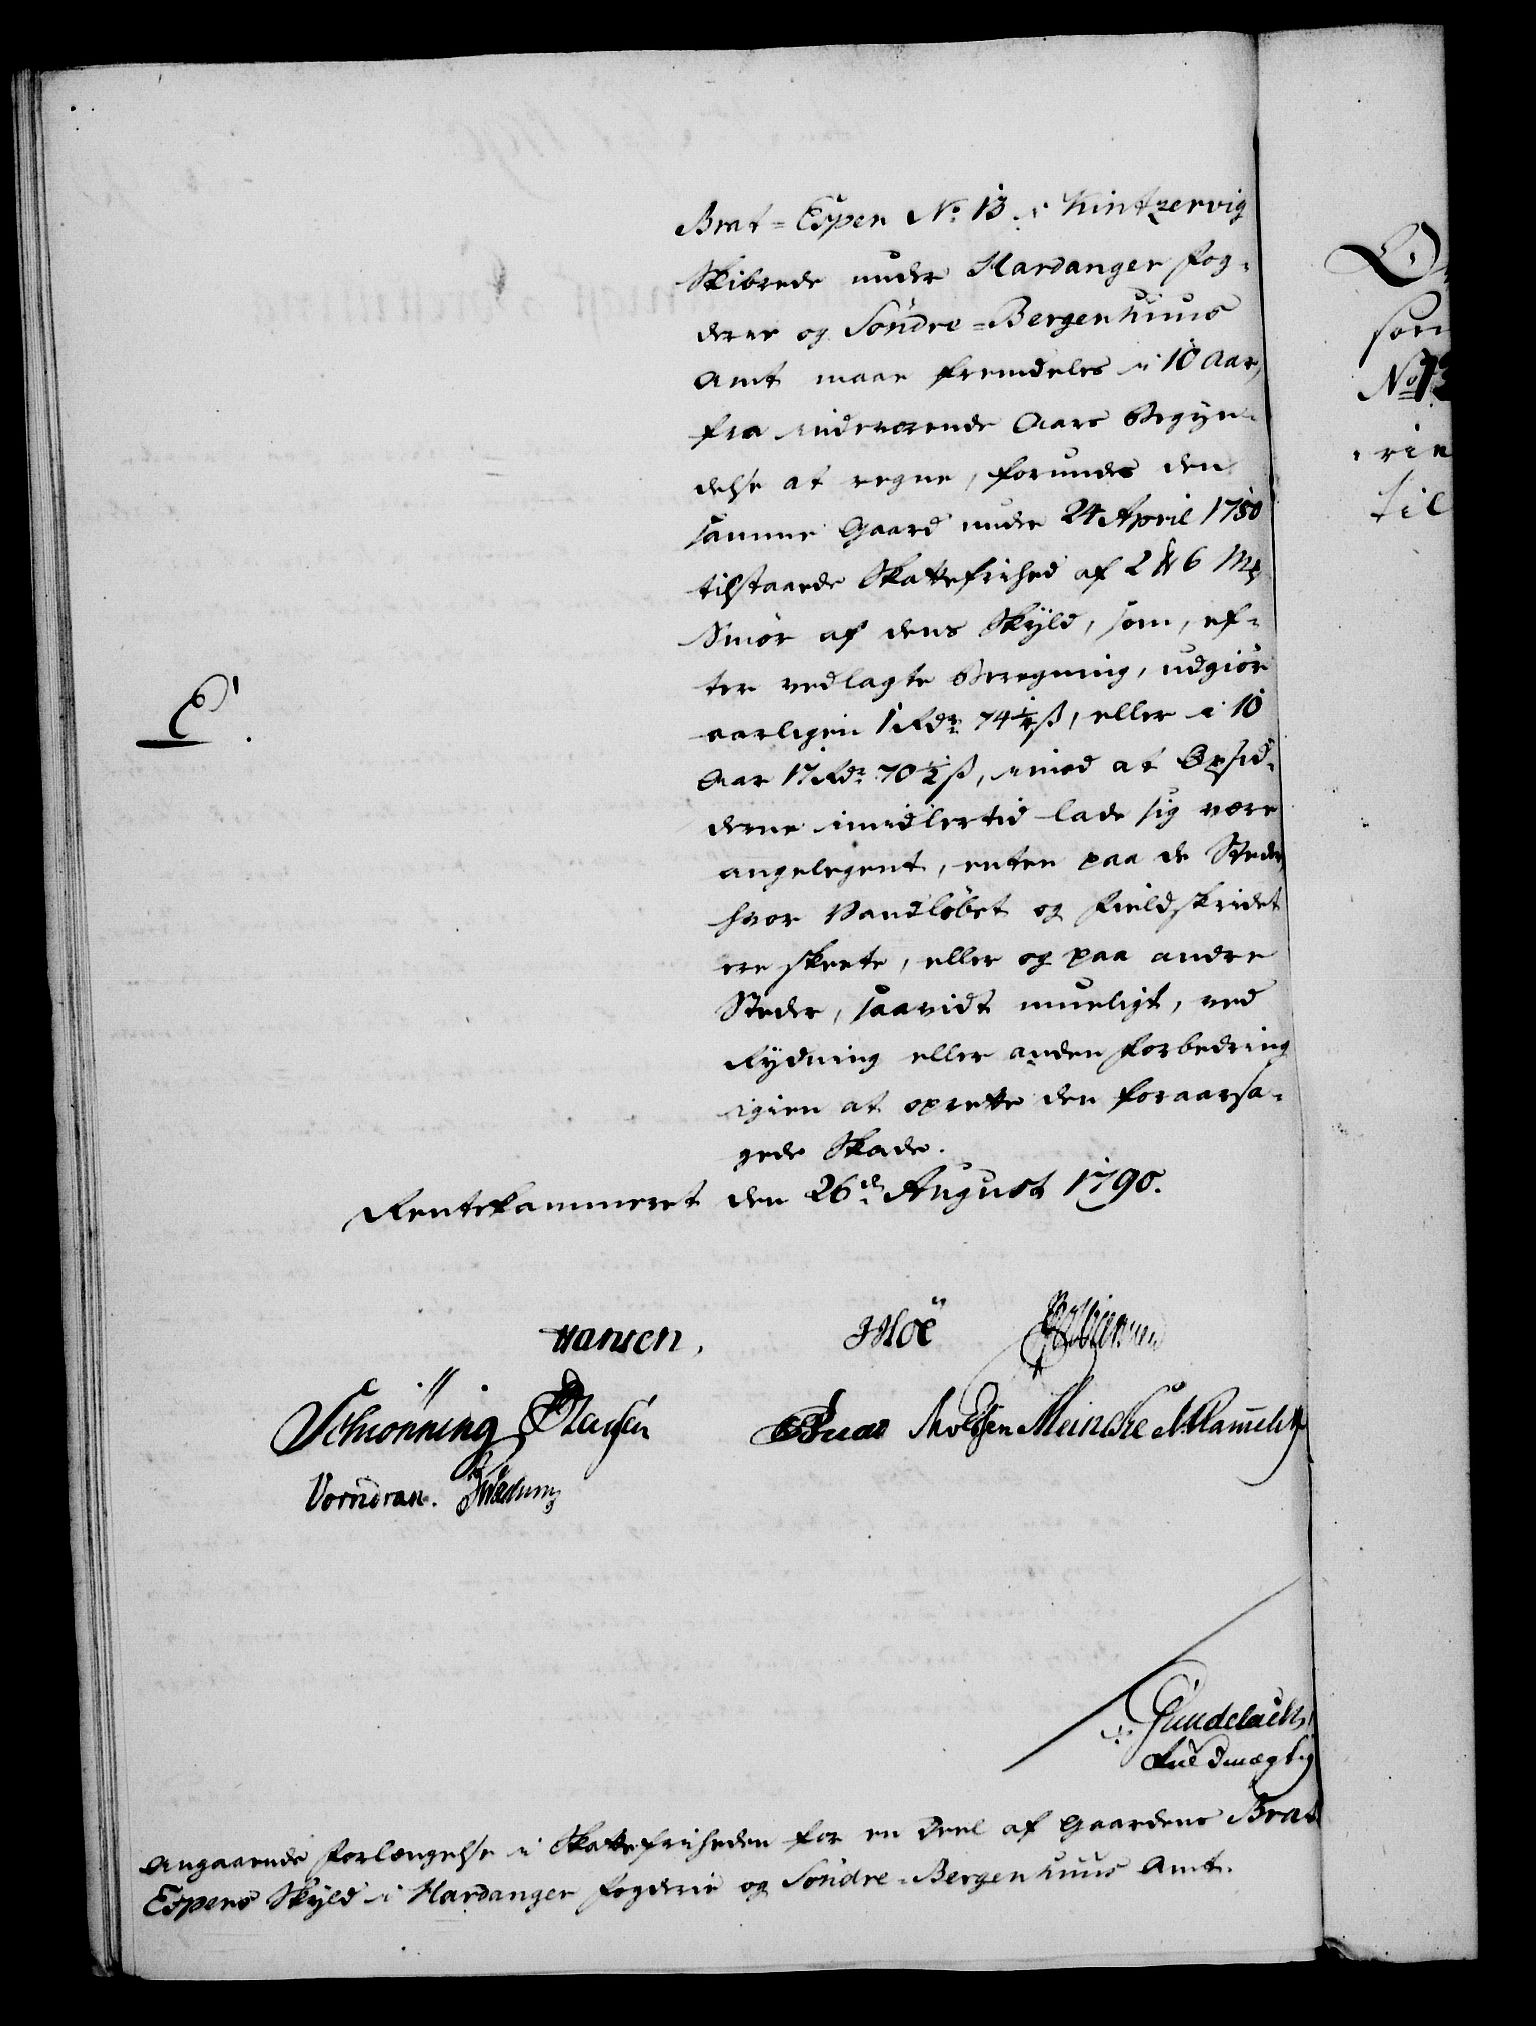 Brat-Espen No. 13 i Kintzervig
Skibrede under Hardanger Fog-
derie og Söndre-Bergenhuus
Amt maae fremdeles i 10 Aar,
fra indeværende Aars Begyn-
delse at regne, forundes den
samme Gaard under 24 April 1780
tilstaaede Skattefrihed af 2 6 Mk
Smör af dens Skyld, som, ef-
ter vedlagte Beregning, udgiör
aarligen 1 Rdr. 74 1/4 ß, eller i 10
Aar 17 Rdr. 70 1/2 ß, imod at Opsid-
derne imidlertid lade sig være
angelegent, enten paa de Steder,
hvor Vandlöbet og Fieldskridet
ere skeete, eller og paa andre
Steder, saavidt mueligt, ved
Rydning eller anden Forbedring
igien at oprette den foraarsa-
gede Skade.
E.
Rentekammeret den 26de August 1790.
Hansen. JMöe
Schiönning Meincke
Vorndran.
Gundelach,
Fuldmægtig
Angaaende Forlængelse i Skattefriheden for en Deel af Gaardens Brat
Espens Skyld i Hardanger Fogderie og Söndre-Bergenhuus Amt.
som
No 13
rie
til